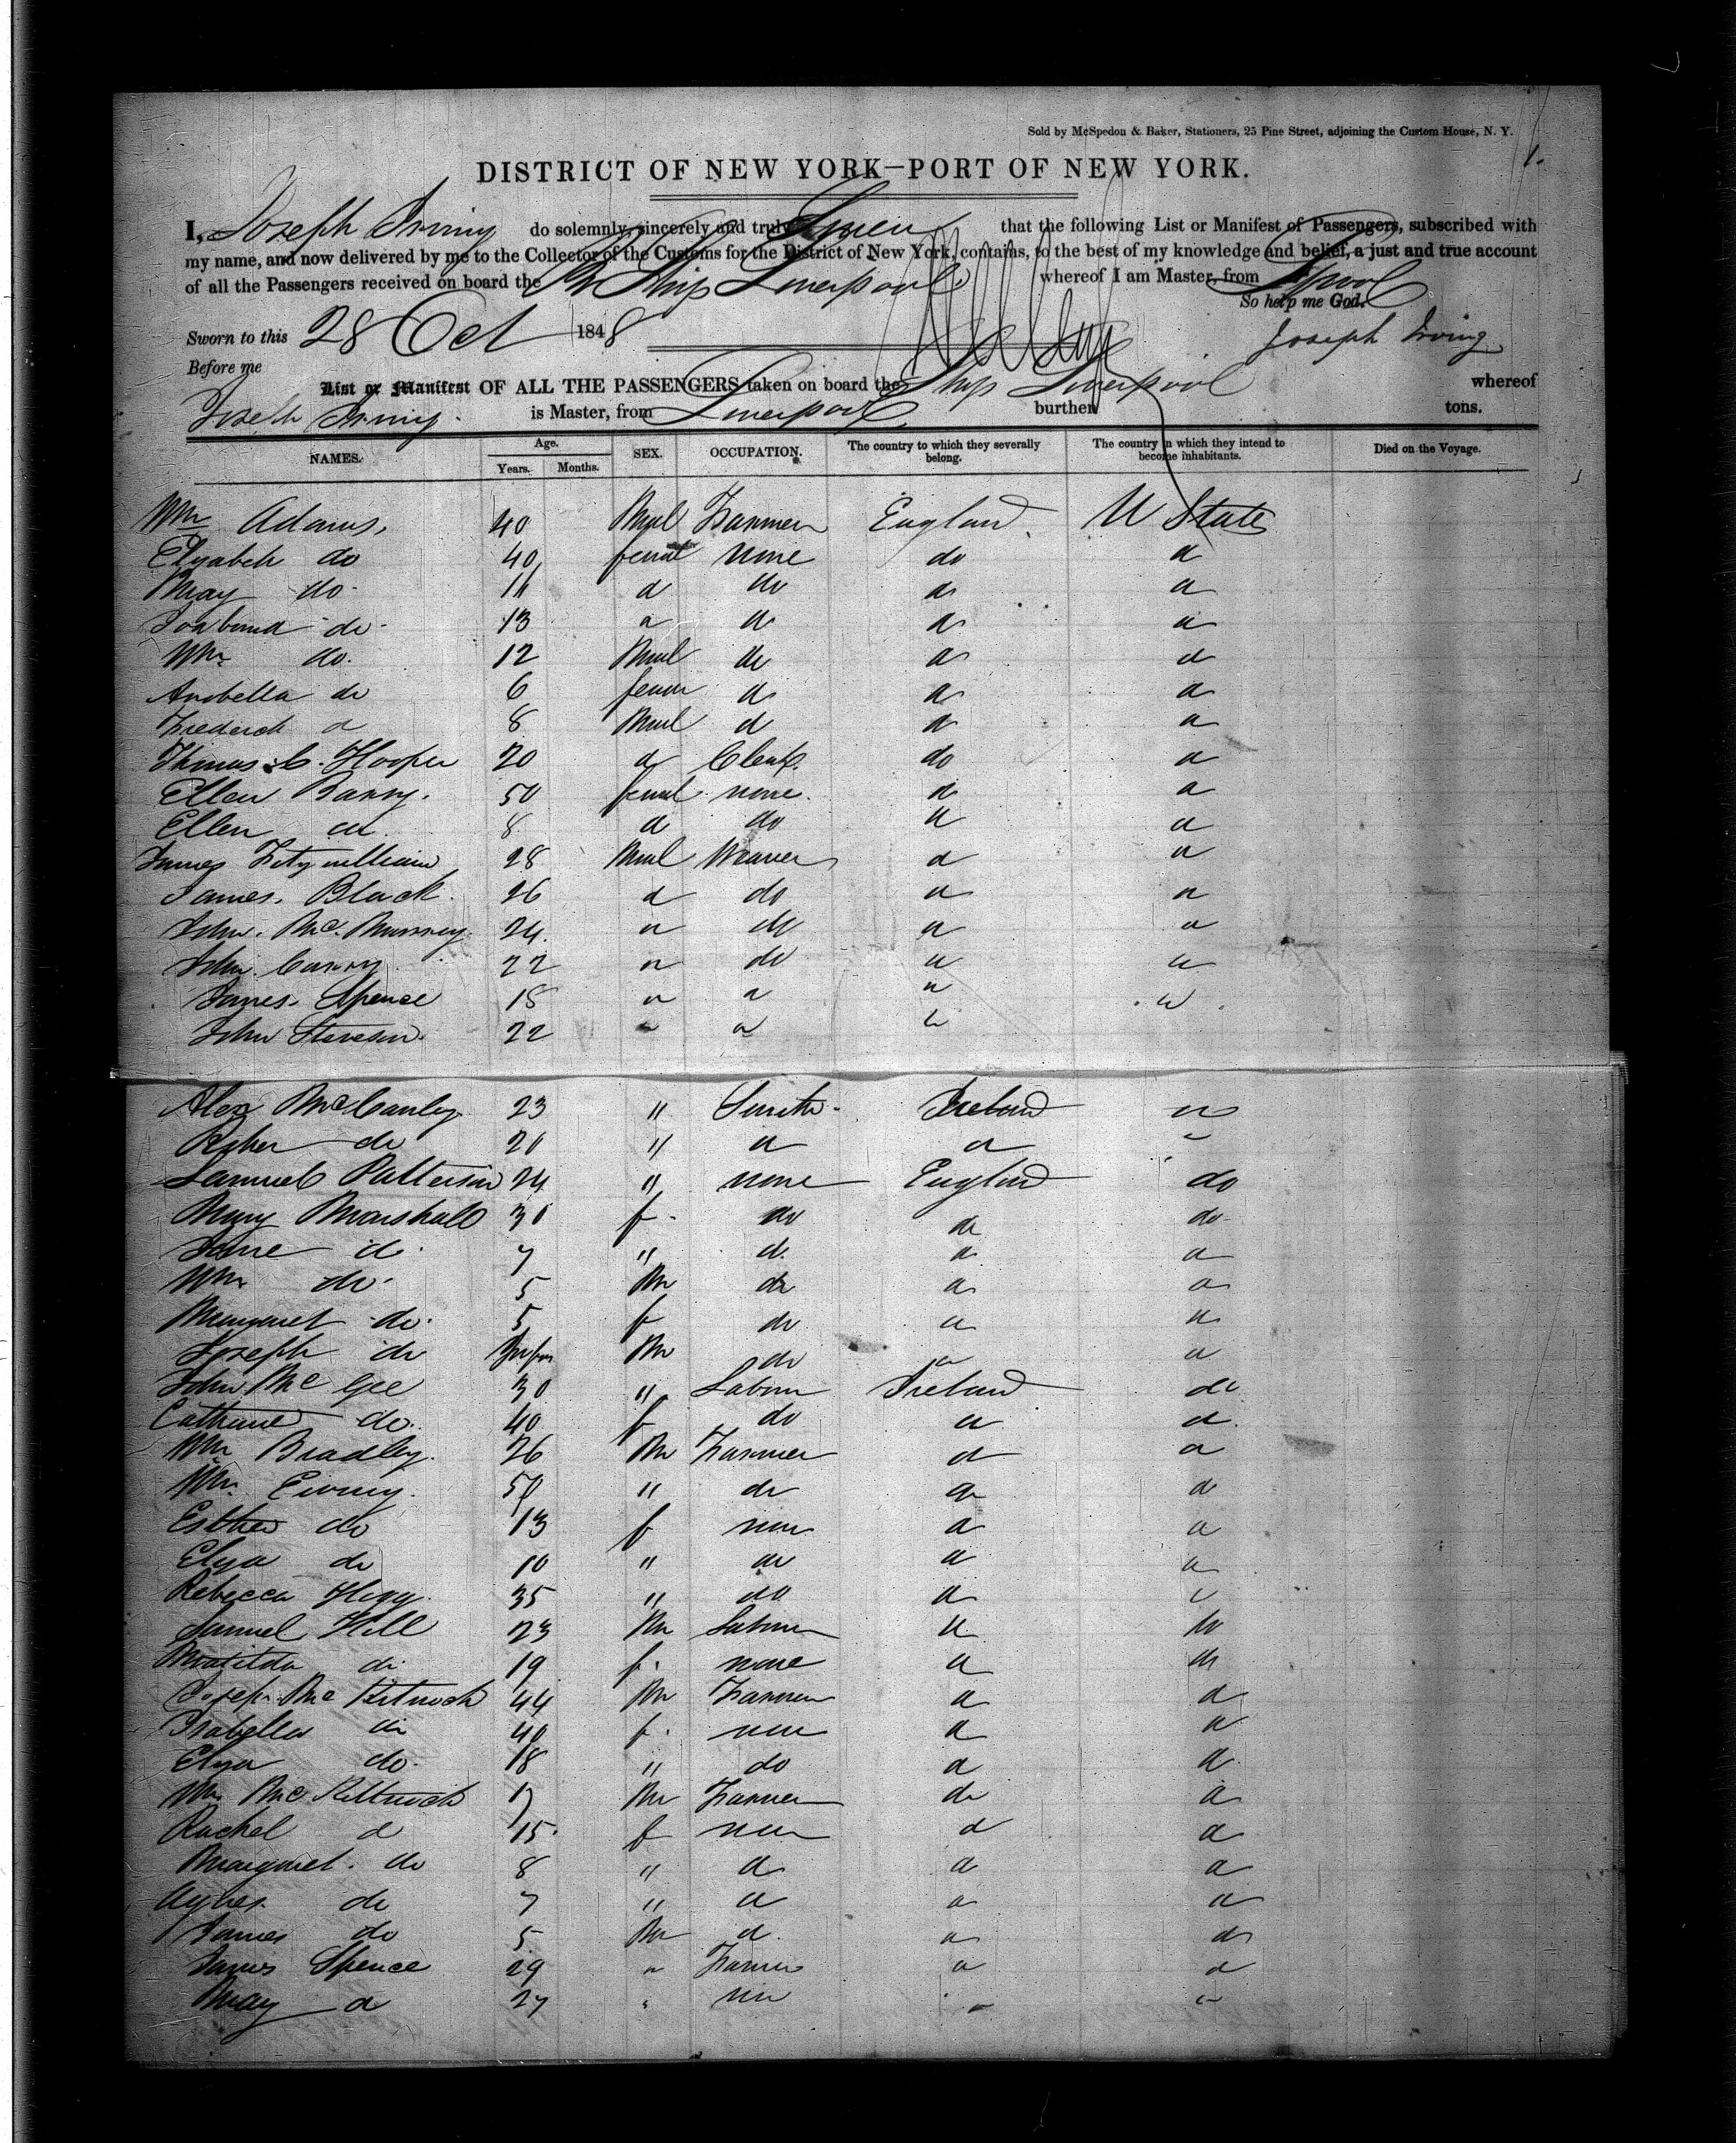 Sold by McSpedon & Baker, Stationers, 25 Pine Street, adjoining the Custom House, N. Y.
1.
DISTRICT OF NEW YORK—PORT OF NEW YORK.
I, Joseph Irving do solemnly, sincerely and truly Swear that the following List or Manifest of Passengers, subscribed with
my name, and now delivered by me to the Collector of the Customs for the District of New York, contains, to the best of my knowledge and belief, a just and true account
of all the Passengers received on board the Ship Liverpool whereof I am Master, from Lpool
So help me God.
Sworn to this 28 Oct 1848 Joseph Irving
Before me
List or Manifest OF ALL THE PASSENGERS taken on board the Ship Liverpool whereof
Joseph Irving is Master, from Liverpool burthen tons.
NAMES. Age. Years. Months. SEX. OCCUPATION. The country to which they severally belong. The country in which they intend to become inhabitants. Died on the Voyage.
Wm Adams, 40 Mal Farmer England U States
Elyabeh do 40 femal none do d
May do 11 d do do d
do 13 d d d d
Wm do. 12 Mal do d d
Arabella do 6 femal d d d
Frederick d 8 Mal d d d
Thomas C. Hooper 20 d Clerk do d
Ellen Barry. 50 femal none. d d
Ellen d 8 d do d d
James Fitzwilliam 28 Mal Weaver d d
James Black 26 d do d d
John Mc Murrey 24 d do d d
John Carry 22 d do d d
James Spence 18 d d d d
John Steveson. 22 d d d
Alex McCauley 23 " Smith Ireland d
do 20 " d d d
Samuel Patterson 24 " none England do
Mary Marshall 30 f do do do
Jane do 7 " d d d
Wm do 5 M do d d
Margaret do 5 f do d d
Joseph do Infn M do d d
John Mc Gee 30 " Labour Ireland do
Catherine do. 40 f do d d
Wm Bradley. 26 M Farmer d d
Wm. 50 " do d d
Esther do 13 f non d d
Elya do 10 " do d d
Rebecca Hogg 35 " do d d
Samuel Hill 23 M Labour d d
Matilda do 19 f. none d d
Joseph Mc Kitrick 44 M Farmer d d
Isabella do 40 f. non d d
Elya do. 18 " do d d
Wm McKittrick 17 M Farmer do d
Rachel d 15 f non d d
Margaret. do 8 " d d d
Agnes do 7 " d d d
James do 5 M d d d
James Spence 29 " Farmer d d
May d 27 " non